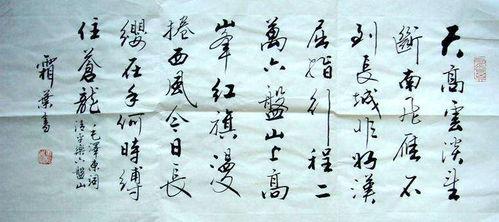 天高雲淡望
斷南飛雁不
到長城非好漢
屈指行程二
萬六盤山上高
峯紅旗漫
捲西風今日長
纓在手何時縛
住蒼龍
毛澤東詞
清平樂六盤山
霜葉書